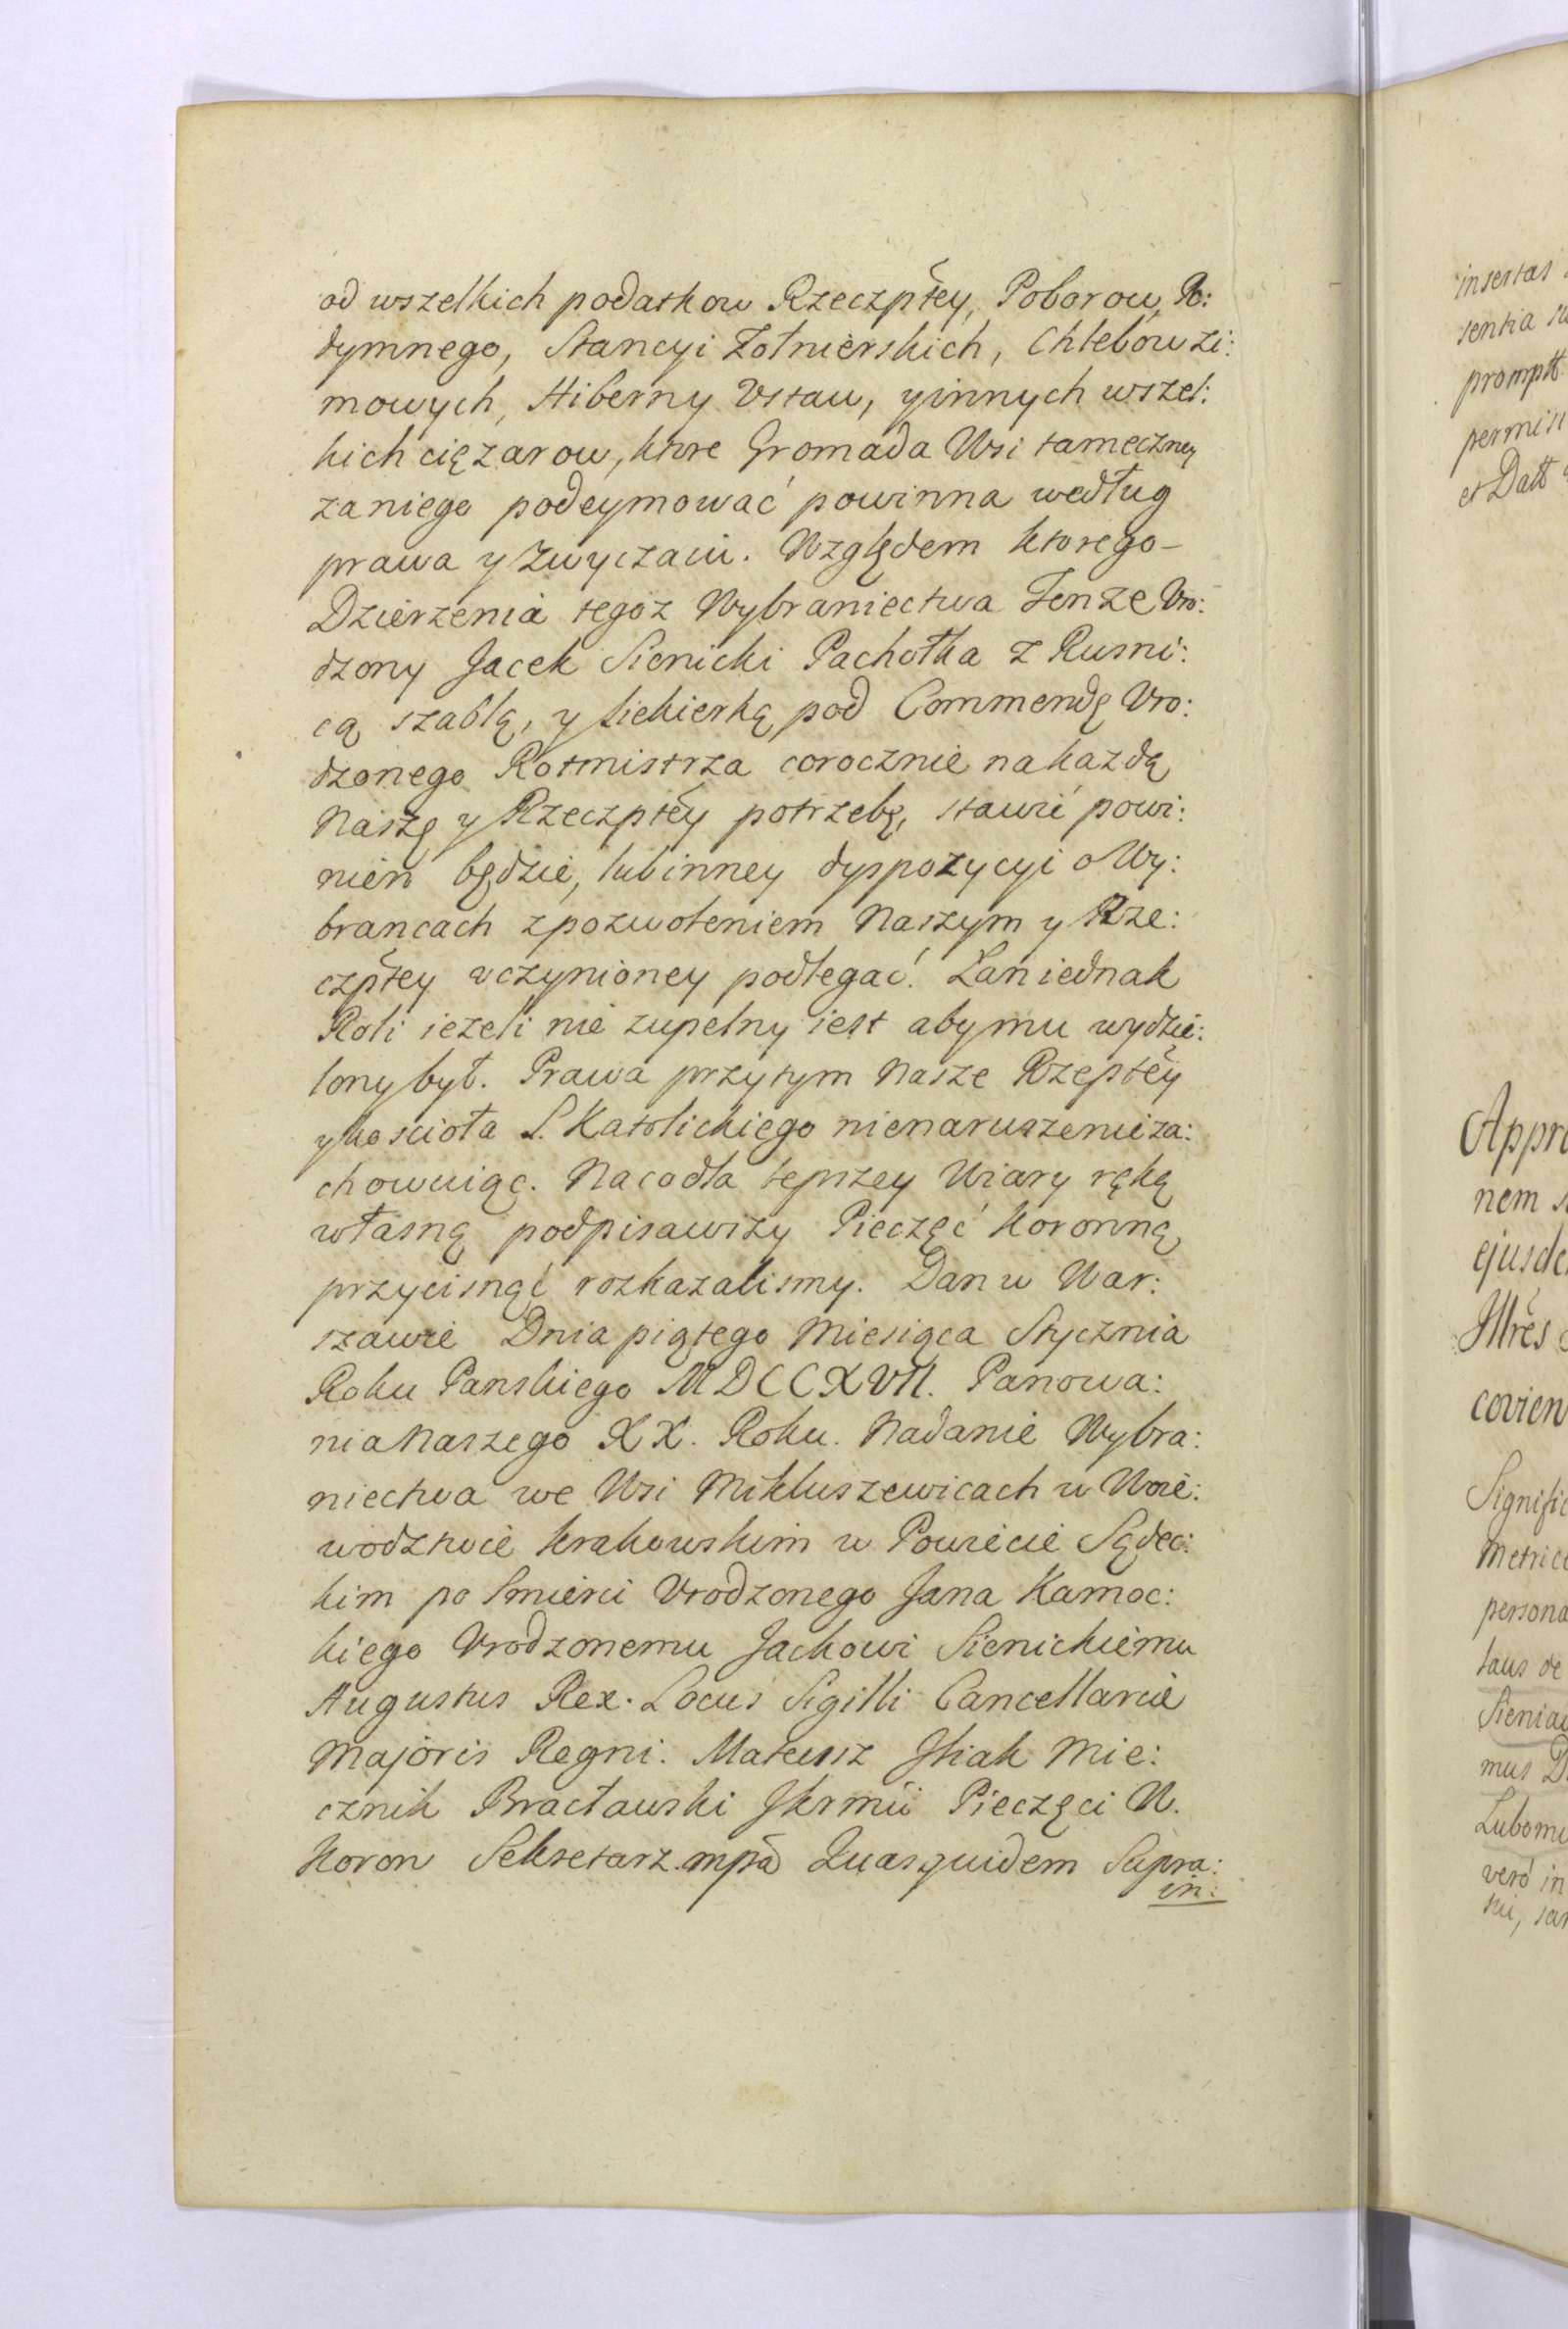 od wszelkich podatkow Rzeczpłey, Poborow, Po:
dymnego, Stancyi Zołnierskich, Chlebów zi:
mowych, Hiberny Vstaw, y innych wszel:
kich cięzarow, ktore Gromada Wsi tameczney
za niego podeymować powinna według
prawa y Zwyczaiu. Względem ktorego-
Dzierzenia tegoz Wybraniectwa Tenze Vro:
dzony Jacek Sienicki Pachołka z Rusni:
cą szablą, y siekierką pod Commendę Vro:
dzonego Rotmistrza corocznie na kazdą
Naszę y Rzeczpłey potrzebę, stawić powi:
nien będzie, lub inney dyspozycyi o Wy:
brancach z pozwoleniem Naszym y Rze:
czpłey vczynioney podlegać. Łan iednak
Roli iezeli nie zupelny iest aby mu wydzie:
lony był. Prawa przytym Nasze Rzepłey
y kościoła S. Katolickiego nienaruszenie za:
chowuiąc. Na co dla lepszey Wiary ręką
własną podpisawszy Pieczęć Koronną
przycisnąć rozkazalismy. Dan w War:
szawie Dnia piątego Miesiąca Stycznia
Roku Panskiego MDCCXVII. Panowa:
nia Naszego XX. Roku. Nadanie Wybra:
niectwa we Wsi Mikluszewicach w Woie:
wodztwie krakowskim w Powiecie Sądec:
kim po Smierci Vrodzonego Jana Kamoc:
kiego Vrodzonemu Jackowi Sienickiemu
Augustus Rex. Locus Sigilli Cancellarie
Majoris Regni. Mateusz Isiak Mie:
cznik Bracławski Jkrmci Pieczęci W.
Koron Sekretarz. mpa Quasquidem Supra:
in:
insertas
sentia
promptt
permis
et Datt
Appro
nem
ejusde
Illres
covien
Signific
Metric
persona
laus de
Sieniaw
mus D
Lubomi
vero in